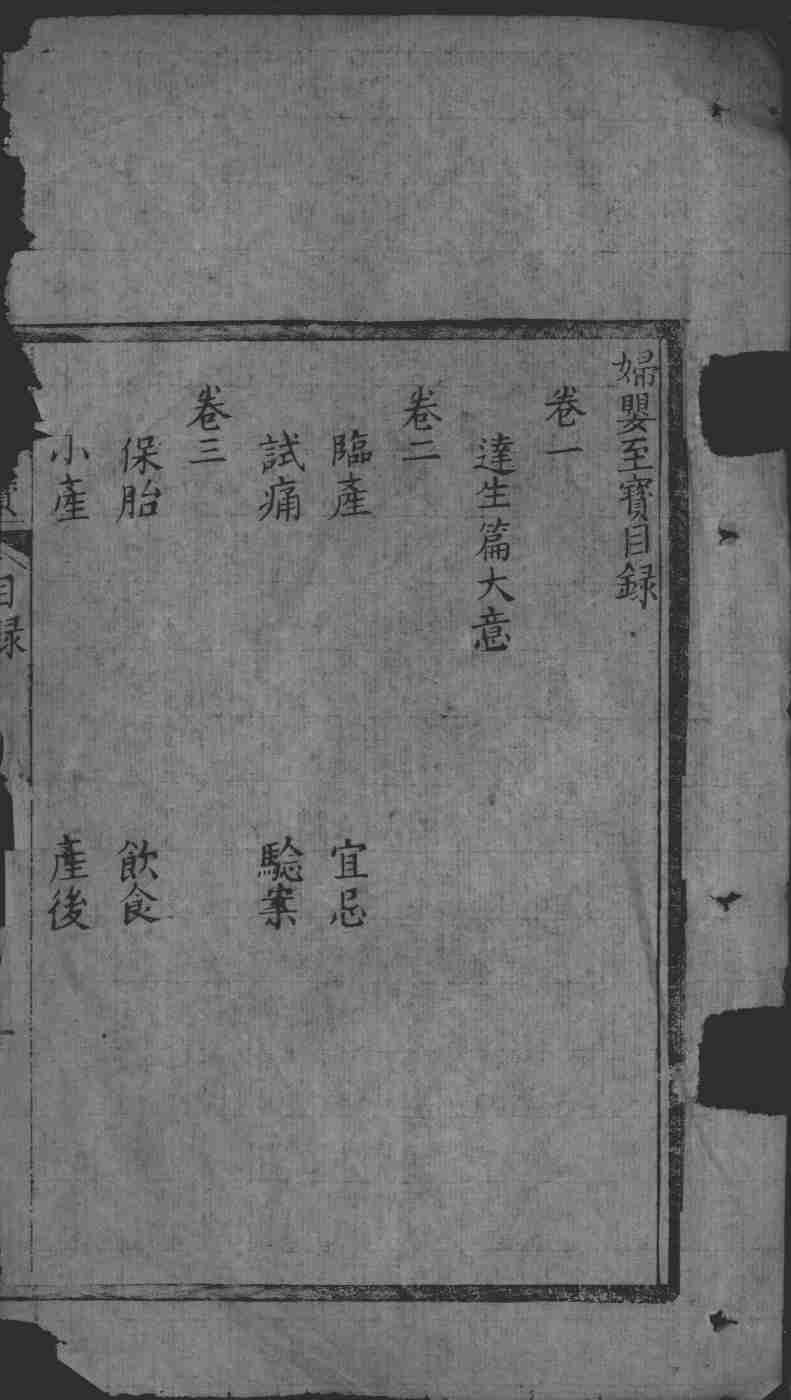 婦嬰至寳目録
卷一
達生篇大意
卷二
臨產 宜忌
試痛 驗案
卷三
保胎 飲食
小產 產後
目録